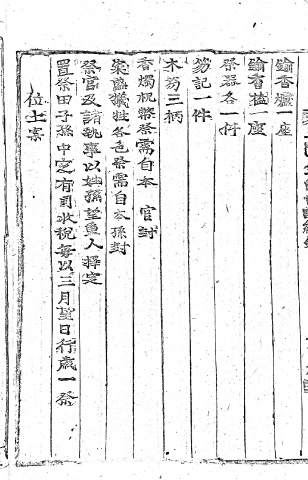 鍮香爐一座
鍮香榼一座
祭器各一件
笏記一件
木笏三柄
香燭祝幣祭需自本 官封
粢盛犧牲各色祭需自本孫封
祭官及諸執事以姓孫望重人擇定
置祭田子孫中定有司收稅每以三月望日行歲一祭
位土案